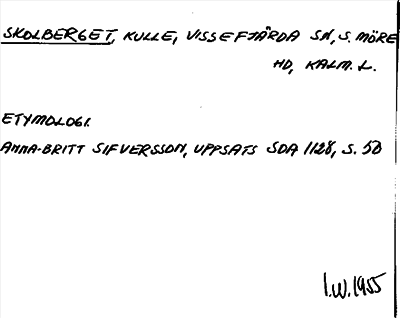 SKOLBERGET, KULLE, VISSEFJÄRDA SN, S. MÖRE
HD, KALM. L.
ETYMOLOGI.
ANNA-BRITT SIFVERSSON, UPPSATS SDA 1128, S. 50
I.W. 1955